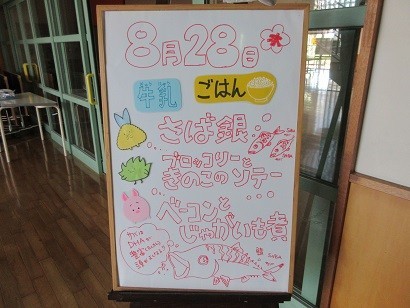 8月28日 木
牛乳 ごはん
さば銀
ブロッコリーと
きのこのソテー
ベーコンと
じゃがいも煮